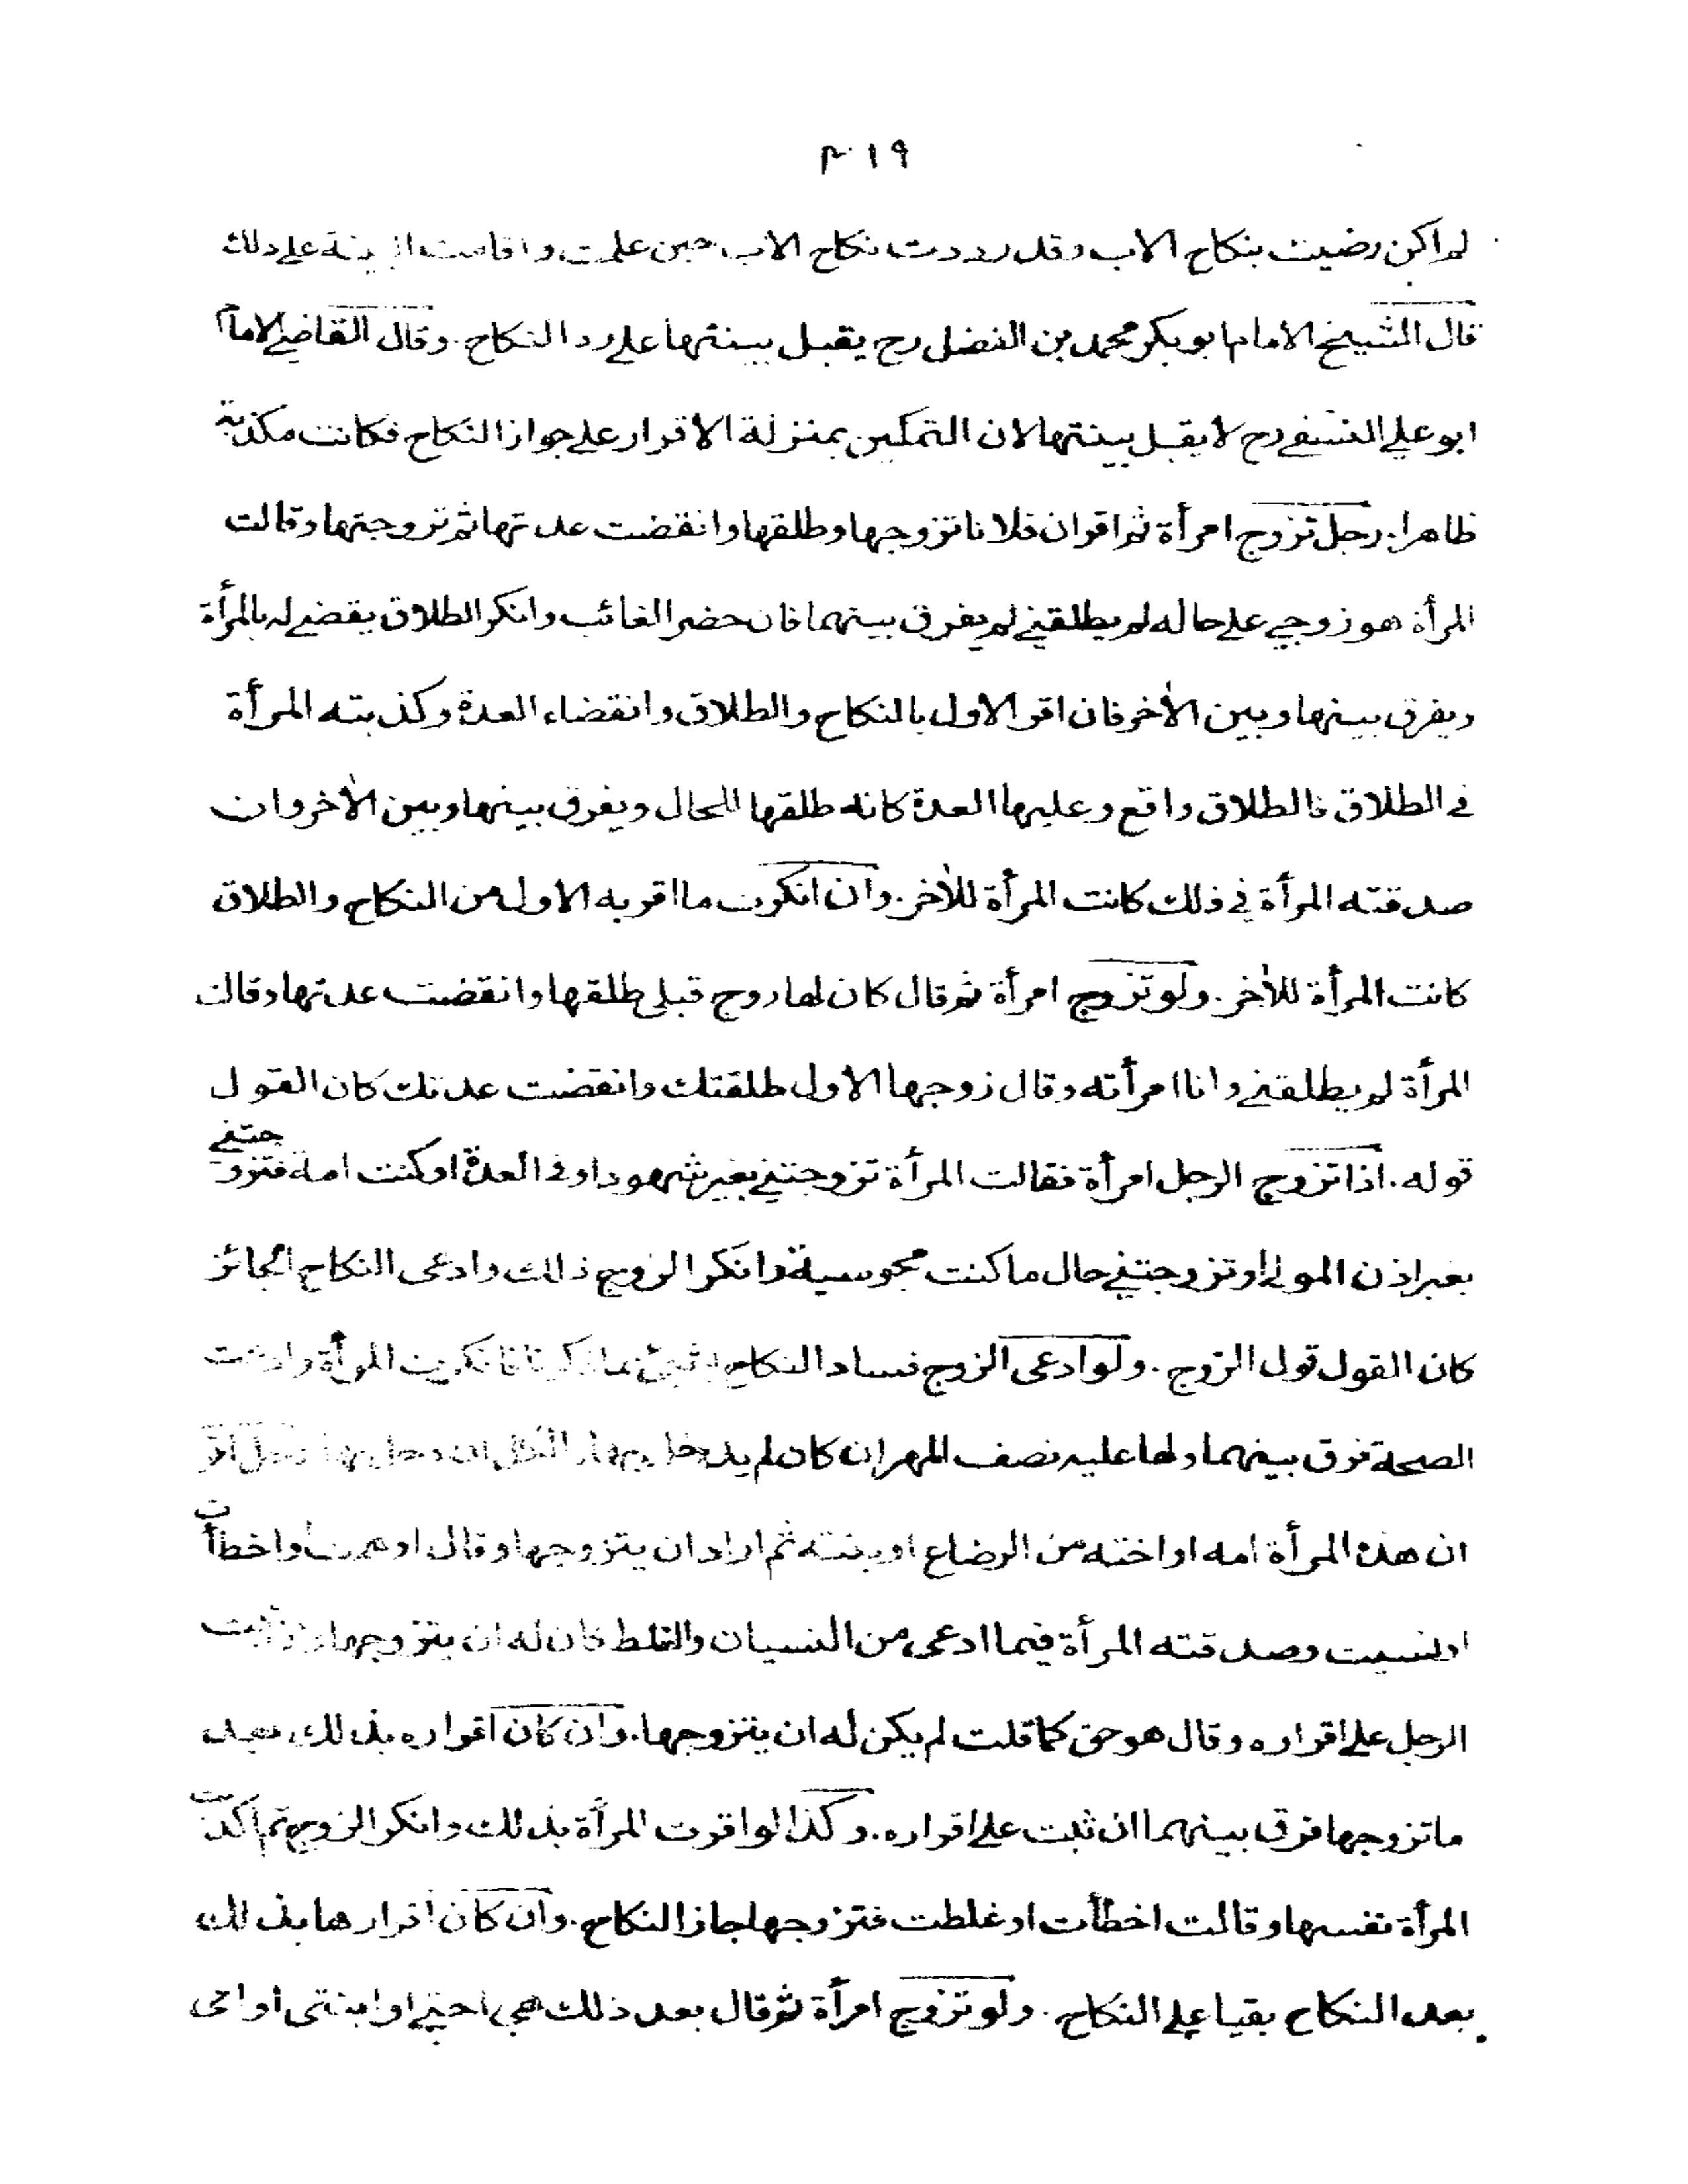 ٣١٩
لم اكن رضيت بنكاح الاب وقد رددت نكاح الاب حين علمت واقامت البينة على ذلك
قال الشيخ الامام ابو بكر محمد بن الفضل رح يقبل بينتها على رد النكاح. وقال القاضى الامام
ابو على النسفى رح لا يقبل بينتها لان التمكين بمنزلة الاقرار على جواز النكاح فكانت مكذبة
ظاهرا. رجل تزوج امرأة ثم اقر ان فلانا تزوجها وطلقها وانقضت عدتها ثم تزوجتها وقالت
المرأة هو زوجى على حاله لم يطلقنى لم يفرق بينهما فان حضر الغائب وانكر الطلاق يقضى له بالمرأة
ويفرق بينها وبين الأخر فان اقر الاول بالنكاح والطلاق وانقضاء العدة وكذبته المرأة
فى الطلاق فالطلاق واقع وعليها العدة كانه طلقها للحال ويفرق بينها وبين الأخر وان
صدقته المرأة فى ذلك كانت المرأة للأخر. وان انكرت ما اقر به الاول من النكاح والطلاق
كانت المرأة للأخر. ولو تزوج امرأة ثم قال كان لها زوج قبلى طلقها وانقضت عدتها وقالت
المرأة لم يطلقنى وانا امرأته وقال زوجها الاول طلقتك وانقضت عدتك كان القول
قوله. اذا تزوج الرجل امرأة فقالت المرأة تزوجتنى بغير شهود او فى العدة او كنت امة فتزوجتنى
بغير اذن المولى او تزوجتنى حال ما كنت مجوسية وانكر الزوج ذلك وادعى النكاح الجائز
كان القول قول الزوج. ولو ادعى الزوج فساد النكاح بشئ مما ذكرنا فانكرت المرأة وادعت
الصحة فرق بينهما ولها عليه نصف المهر ان كان لم يدخل بها والكل ان دخل بها. رجل اقر
ان هذه المرأة امه او اخته من الرضاع او بنته ثم اراد ان يتزوجها وقال اوهمت او اخطأت
او نسيت وصدقته المرأة فيما ادعى من النسيان والغلط كان له ان يتزوجها وان ثبت
الرجل على اقراره وقال هو حق كما قلت لم يكن له ان يتزوجها. وان كان اقراره بذلك بعد
ما تزوجها فرق بينهما ان ثبت على اقراره. وكذا لو اقرت المرأة بذلك وانكر الزوج ثم اكذبت
المرأة نفسها وقالت اخطأت او غلطت فتزوجها جاز النكاح. وان كان اقرارها بذلك
بعد النكاح بقيا على النكاح. ولو تزوج امرأة ثم قال بعد ذلك هى اختى او ابنتى او امى